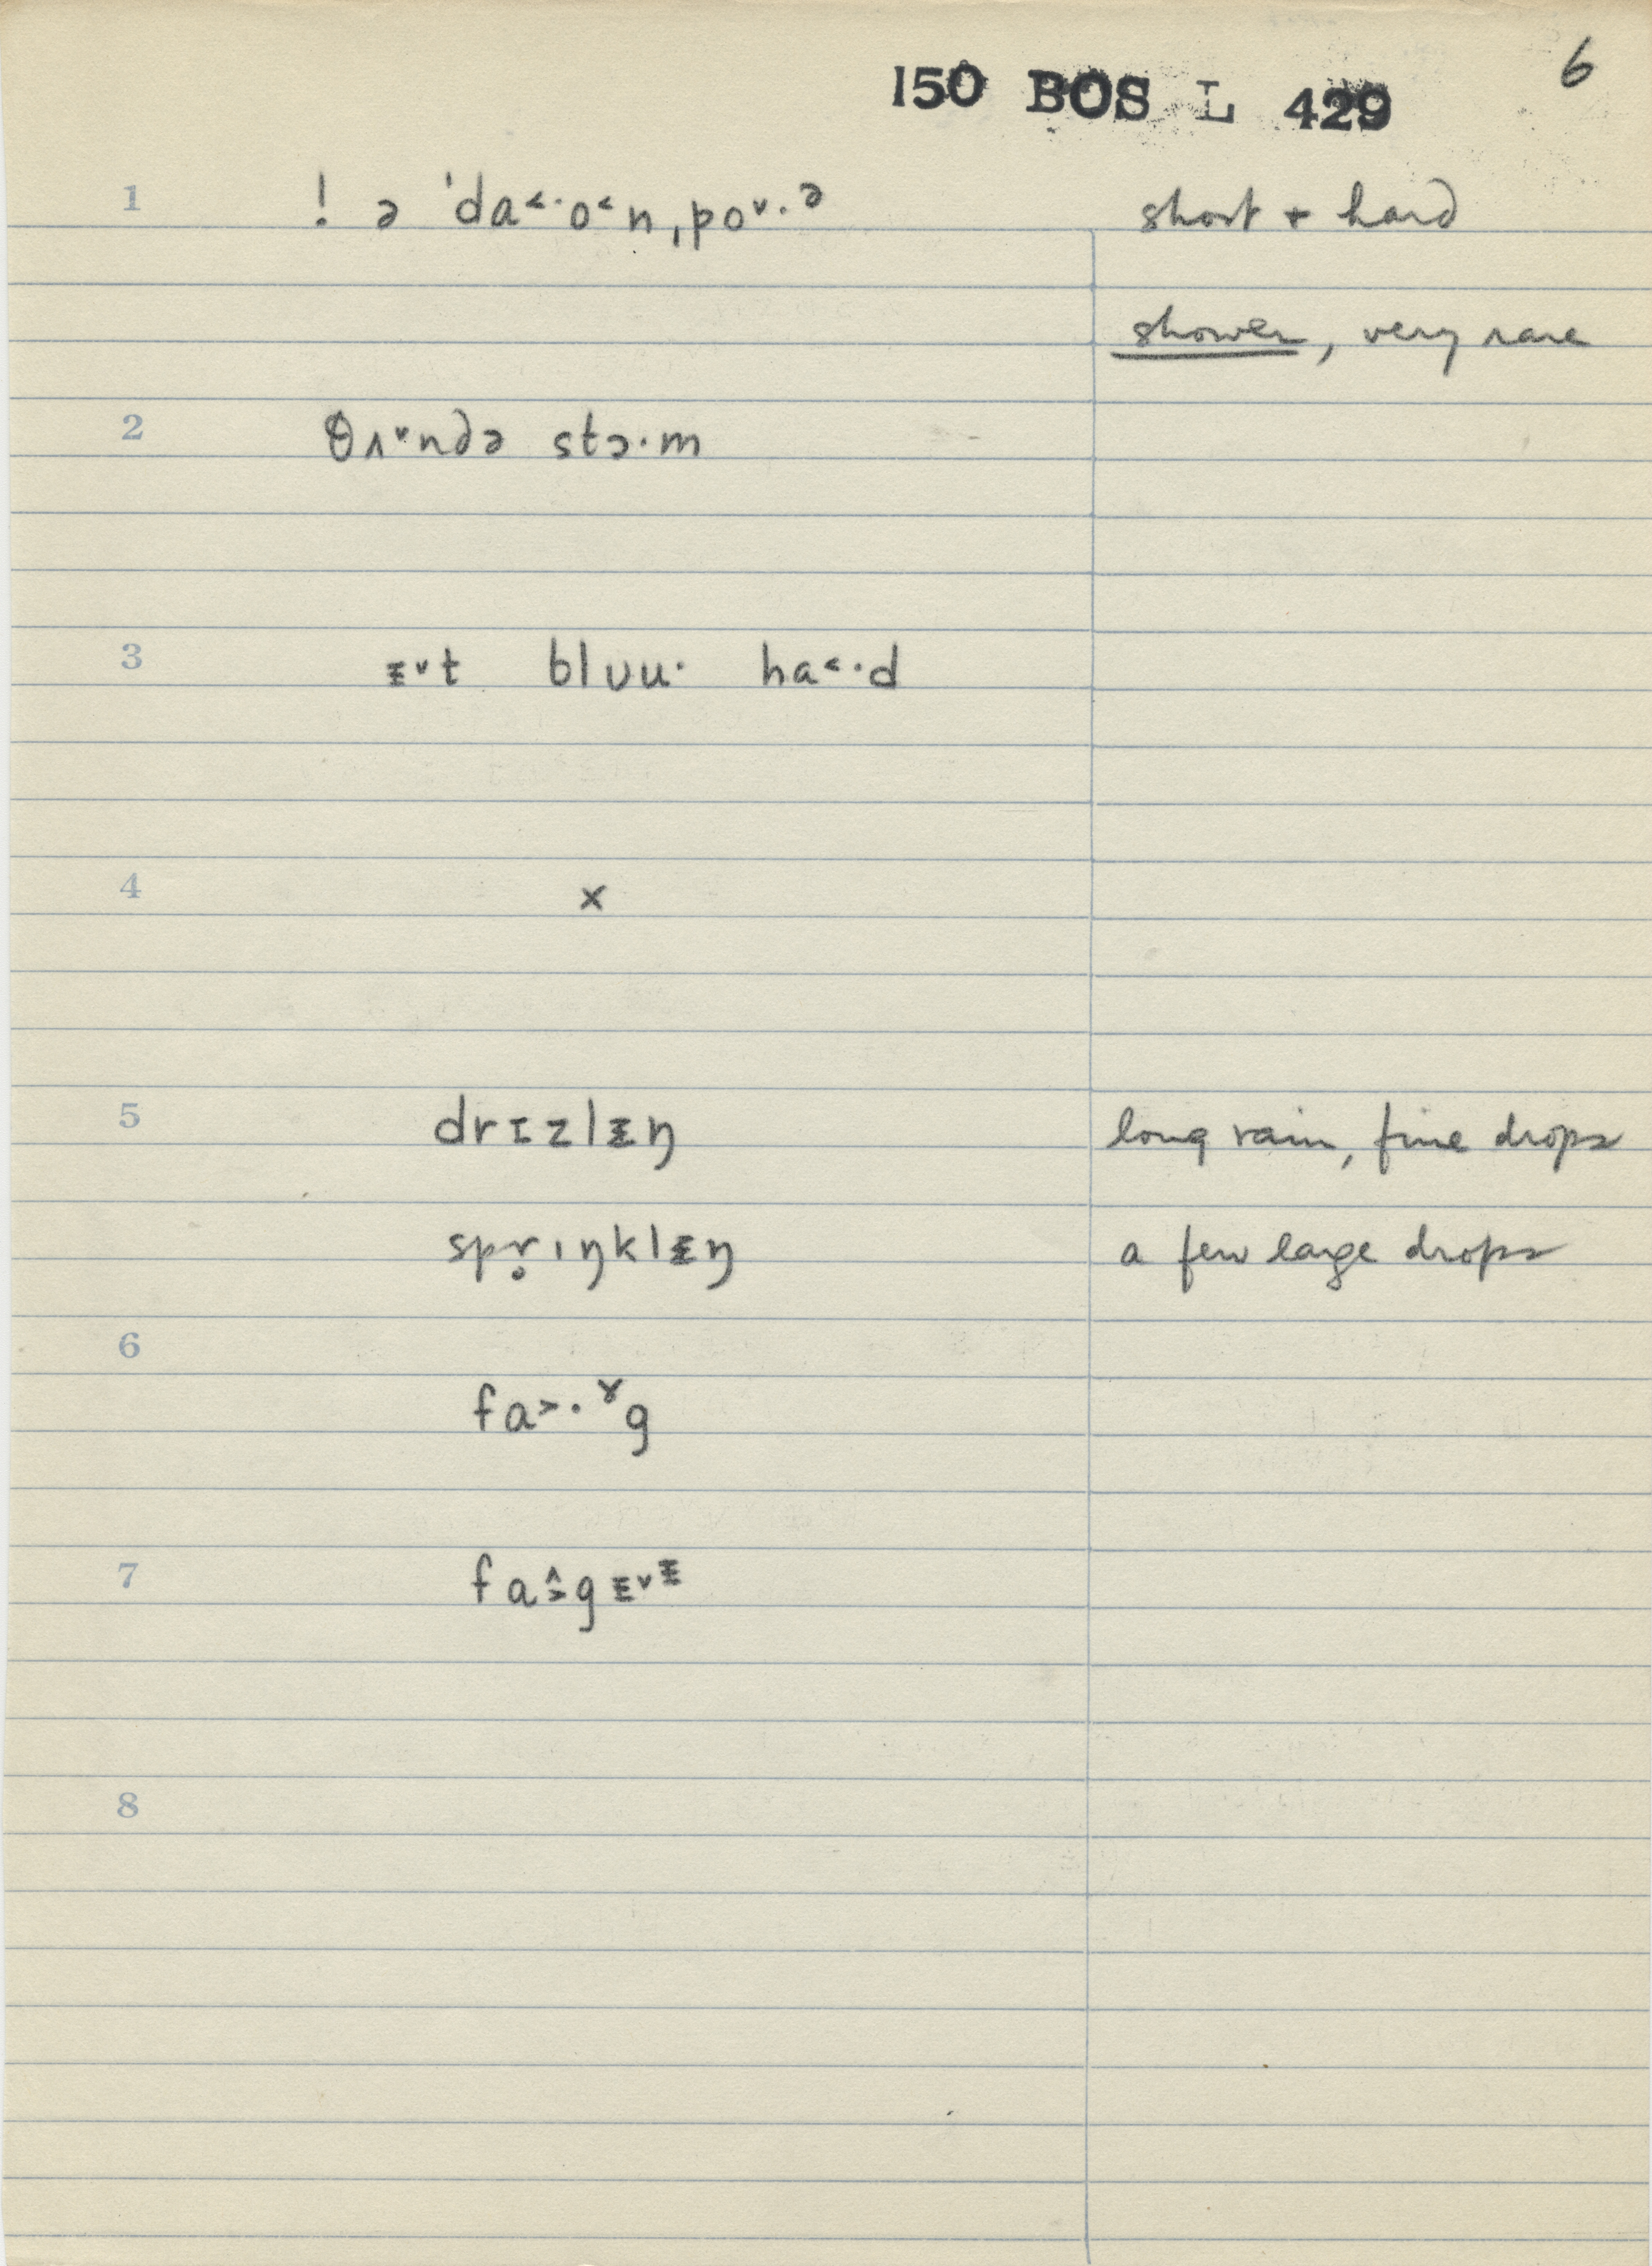 6
150 BOS L 429
1 ! ə ˈda˂·o˂n ˌpo˅·ᵊ short + hard
shower, very rare
2 θʌ˅ndə stɔ·m
3 ɪ̵˅t blʊu· ha˂·d
4 x
5 drɪzlɪ̵ŋ long rain, fine drops
spr̥ɪŋklɪ̵ŋ a few large drops
6
fa˃·ˠg
7 fa˄˃gɪ̵˅ᶤ
8